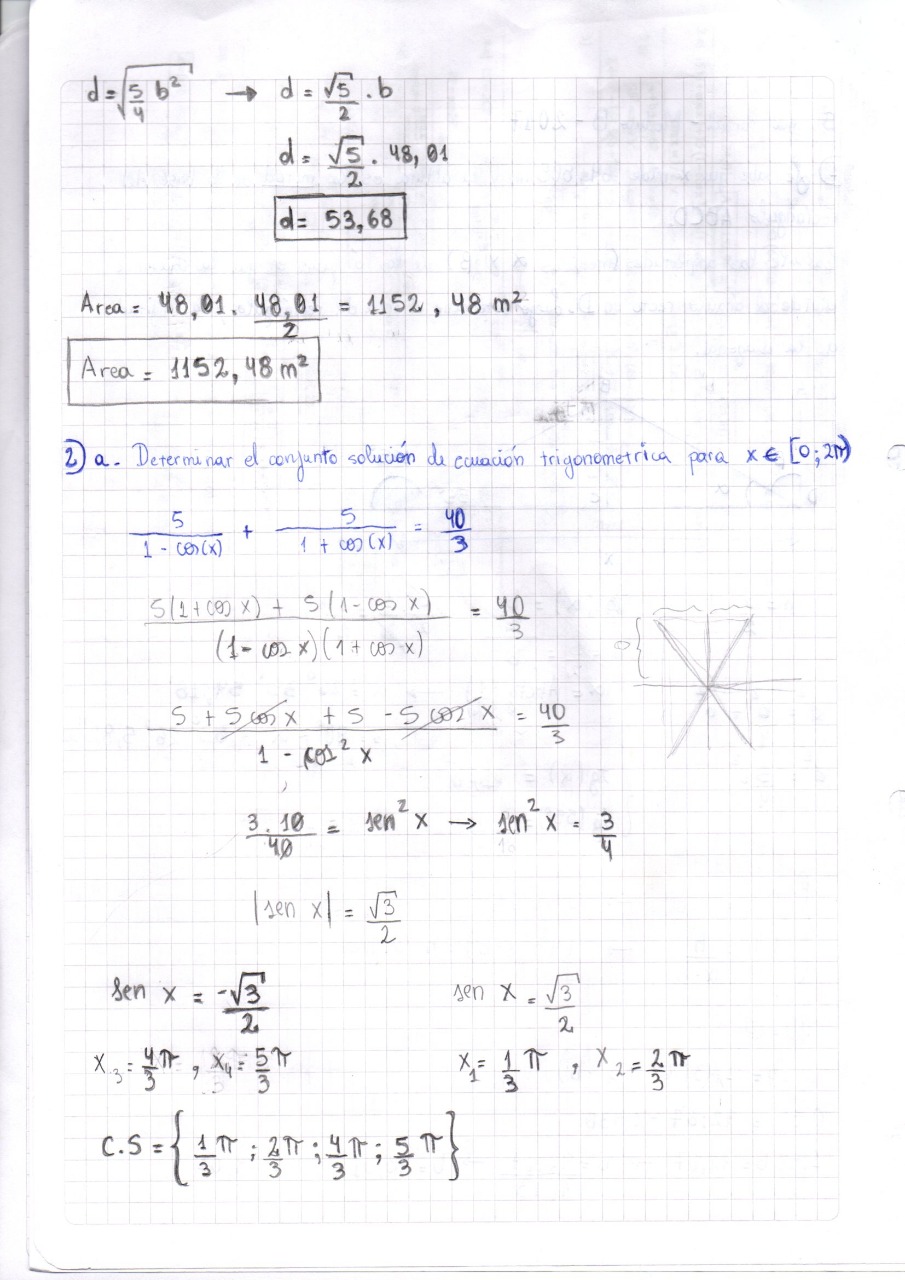 d = √(5/4 b²) → d = √5/2 . b
d = √5/2 . 48,01
d = 53,68
Area = 48,01 . 48,01/2 = 1152,48 m²
Area = 1152,48 m²
2) a. Determinar el conjunto solución de ecuación trigonometrica para x ∈ [0; 2π)
5/(1 - cos(x)) + 5/(1 + cos(x)) = 40/3
(5(1+cos x) + 5(1-cos x))/((1-cos x)(1+cos x)) = 40/3
(5 + 5cos x + 5 - 5cos x)/(1 - cos² x) = 40/3
3.10/40 = sen² x → sen² x = 3/4
|sen x| = √3/2
sen x = -√3/2 sen x = √3/2
x₃ = 4/3 π , x₄ = 5/3 π x₁ = 1/3 π , x₂ = 2/3 π
C.S = {1/3 π ; 2/3 π ; 4/3 π ; 5/3 π}